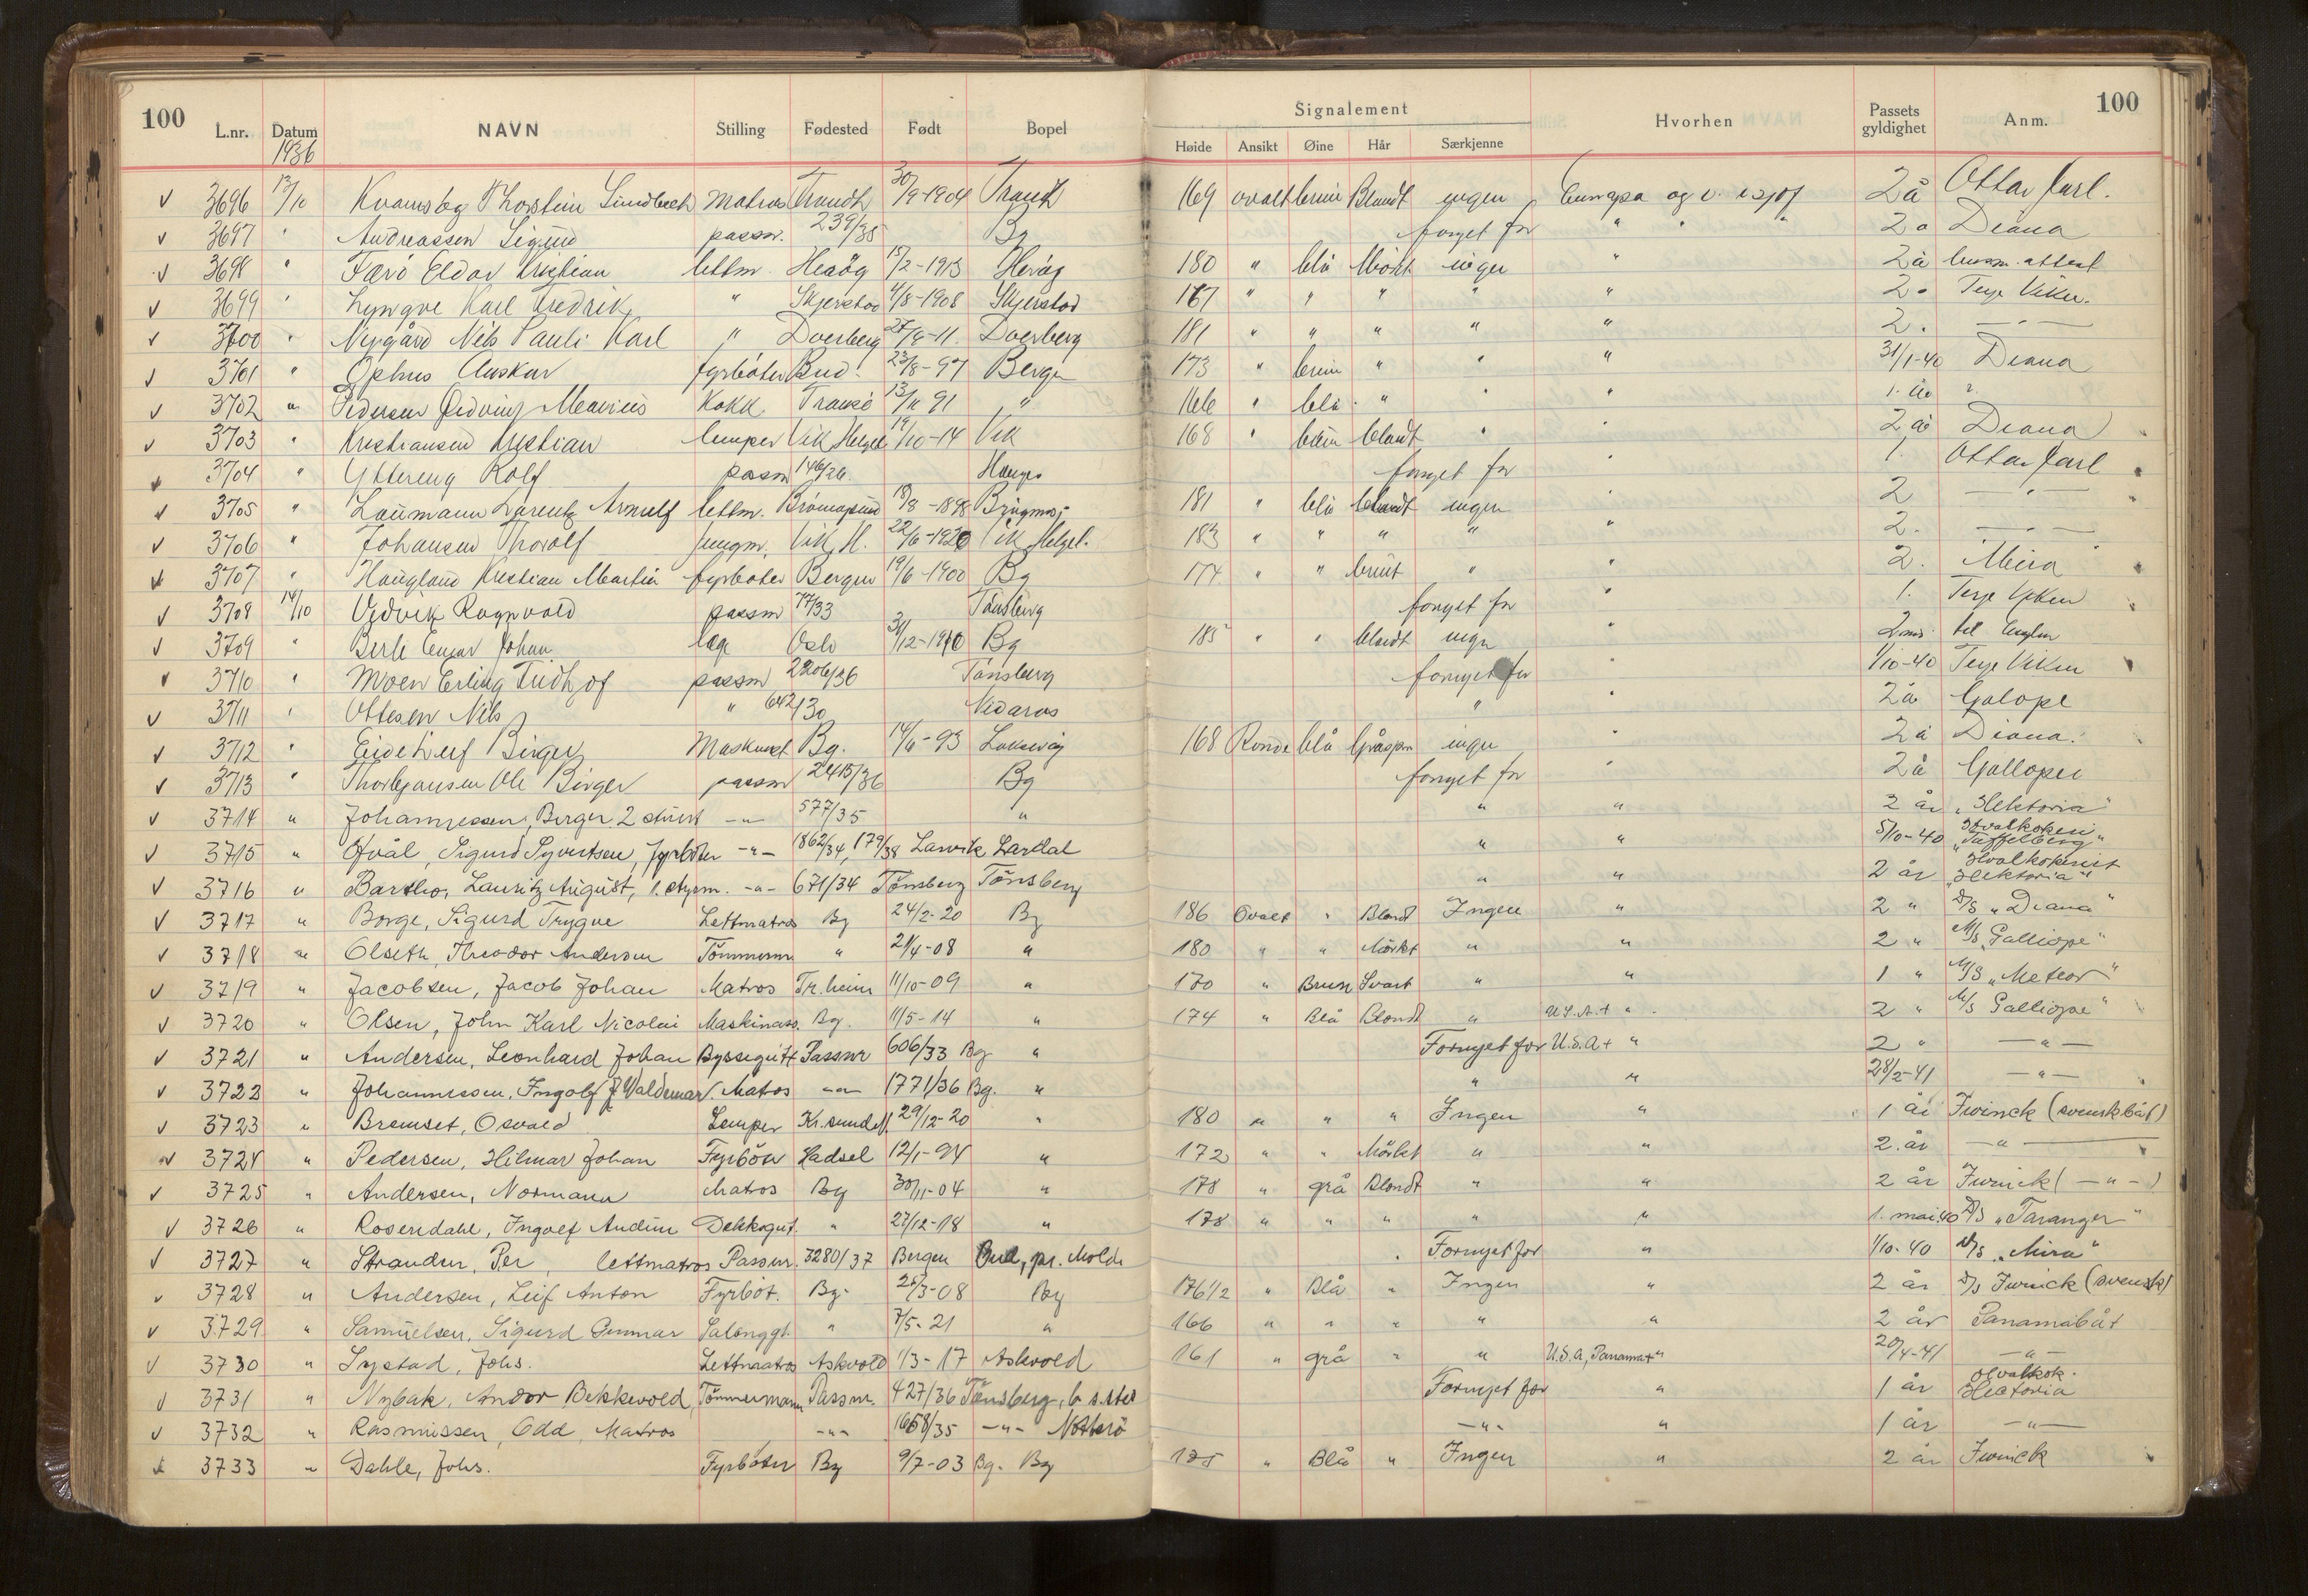 100 L.nr. Datum 1936 NAVN Stilling Fødested Født Bopel
Signalement
Høide Ansikt Øine Hår Særkjenne Hvorhen Passets gyldighet Anm. 100
3696 13/10 Kvamsberg Thorstein Lindbeck Matros Trondh 30/9-1904 Trondh 169 ovalt brun Blondt ingen Europa og 2 å Ottar Jarl.
3697 " Andreassen Sigurd passnr. 239/38 Bg fornyet for " " " 2 " Diana
3698 " Færö Eldar Kristian lettm. 15/2-1913 180 " blå Mörkt ingen " 2 å attest
3699 " Lyngve Karl Fredrik " Skjerstad 4/8-1908 Skjerstad 167 " " " " " 2 " Terje Viken.
3700 " Nygård Nils Pauli Karl " Dverberg 27/9-11. Dverberg 181 " " " " " 2. — " —
3701 " Ophus Anskar fyrböter Bud. 23/8-97 Bergen 173 " brun " " " 31/1-40 Diana
3702 " Pedersen Medvin Meavius Kokk Tromsö 13/11 91 " 166 " blå " " " 1. år "
3703 " Kristiansen Kristian lemper Vik Helgel 19/10-14 Vik 168 " brun blondt " " 2 år Diana
3704 " Yttereng Rolf passnr 146/26. fornyet for " 1. Ottar Jarl
3705 " Laumann Larentz Arnulf lettm. Brönnöysund 18/8-1898 181 " blå blondt ingen " 2 — " —
3706 " Johansen Thorolf jungm. Vik H. 22/6-1920 Vik Helgel. 183 " " " " " 2. — " —
3707 " Haugland Kristian Martin fyrböter Bergen 19/6-1900 Bg 174 " " brunt " " 2. "Mira"
3708 14/10 Vedvik Ragnvald passnr 77/33 Tönsberg fornyet for " 1. Terje Viken
3709 " Berle Einar Johan Oslo 31/12-1910 Bg 185 " " blondt ingen " 2 til
3710 " Moen Erling Fridhjof passnr 2206/36 Tönsberg fornyet for " 1/10-40 Terje Viken
3711 " Ottesen Nils " 642/30 " " 2 å Galope
3712 " Eide Leif Birger Maskinist Bg. 14/6-93 Laksevåg 168 Runde blå gråspr ingen " 2 å Diana.
3713 " Thorbjørnsen Ole Birger passnr 2415/36 Bg fornyet for " 2 å Galloper
3714 " Johannessen, Birger 2 stuert -"- 577/35 " " " 2 år "Hektoria"
3715 " Hvål, Sigurd Syvertsen, fyrböter -"- 1862/34, 179/38 Larvik Lardal " " 5/10-40 Hvalkokeri "Taffelberg"
3716 " Bartho, Lauritz August, 1. styrm. -"- 671/34 Tönsberg Tönsberg " " 2 år Hvalkokeriet "Hektoria"
3717 " Borge, Sigurd Trygve Lettmatros Bg 24/2-20 Bg 186 Ovalt " Blondt Ingen " 2 " D/S "Diana"
3718 " Olseth, Theodor Andersen Tömmerm " 21/4-08 " 180 " " Mörkt " " 2 " M/S "Calliope"
3719 " Jacobsen, Jacob Johan Matros Tr.heim 11/10-09 " 170 " Brun Svart " " 1 " M/S "Meteor"
3720 " Olsen, John Karl Nicolai Maskinass. Bg. 11/5-14 " 174 " Blå Blondt " U.S.A.+ " 2 " M/S Calliope"
3721 " Andersen, Leonhard Johan Byssegutt Passnr 606/33 Bg " Fornyet for U.S.A+ " 2 " — " —
3722 " Johannessen, Ingolf J Waldemar Matros -"- 1771/36 Bg. " " " 28/2-41 — " —
3723 " Bremset, Osvald Lemper Kr.sund N 29/12-20 " 180 " " " Ingen " 1 år Iwinck (svensk båt)
3724 " Pedersen, Hilmar Johan Fyrböter Hadsel 12/1-94 " 172 " " Mörkt " " 2. år — " —
3725 " Andersen, Normann Matros Bg 30/11-04 " 178 " grå Blondt " " 2 år Iwinck (—"—)
3726 " Rosendahl, Ingolf Audun Dekksgut. " 27/12-18 " 178 " " " " " 1. mai 40 D/S "Taranger"
3727 " Stranden, Per, lettmatros Passnr. 3280/37 Bergen Bud, pr. Molde " Fornyet for " 1/10-40 D/S "Mira"
3728 " Andersen, Leif Anton Fyrböt. Bg. 28/3-08 Bg 176 1/2 " Blå " Ingen " 2 år D/S Iwinck (svensk)
3729 " Samuelsen, Sigurd Gunnar Salonggt. " 7/5-21 " 166 " " " " " 2 år Panamabåt
3730 " Systad, Johs. Lettmatros Askvold 1/3-17 Askvold 161 " grå " " U.S.A, Panama+ " 20/4-41 — " —
3731 " Nybak, Andor Bekkevold, Tömmermann Passnr. 427/36 Tönsberg, Fornyet for " 1 år Hvalkok. Hektoria
3732 " Rasmussen, Odd, Matros -"- 1658/35 -"- Nötterö -"- " 1 år — " —
3733 " Dahle, Johs. Fyrböter Bg 9/7-03 Bg. Bg 175 " Blå " Ingen " 2 år Iwinck